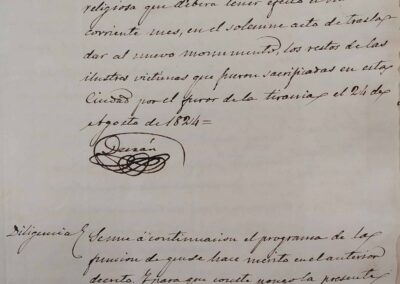 religiosa que deberá tener efecto
corriente mes, en el solemne acto de trasla-
dar al nuevo monumento, los restos de las
ilustres victimas que fueron sacrificadas en esta
Ciudad por el furor de la tirania, el 24 de
Agosto de 1824=
Durán
Diligencia} Se une á continuacion el programa de la
funcion de que se hace merito en el anterior
decreto. Y para que conste pongo la presente